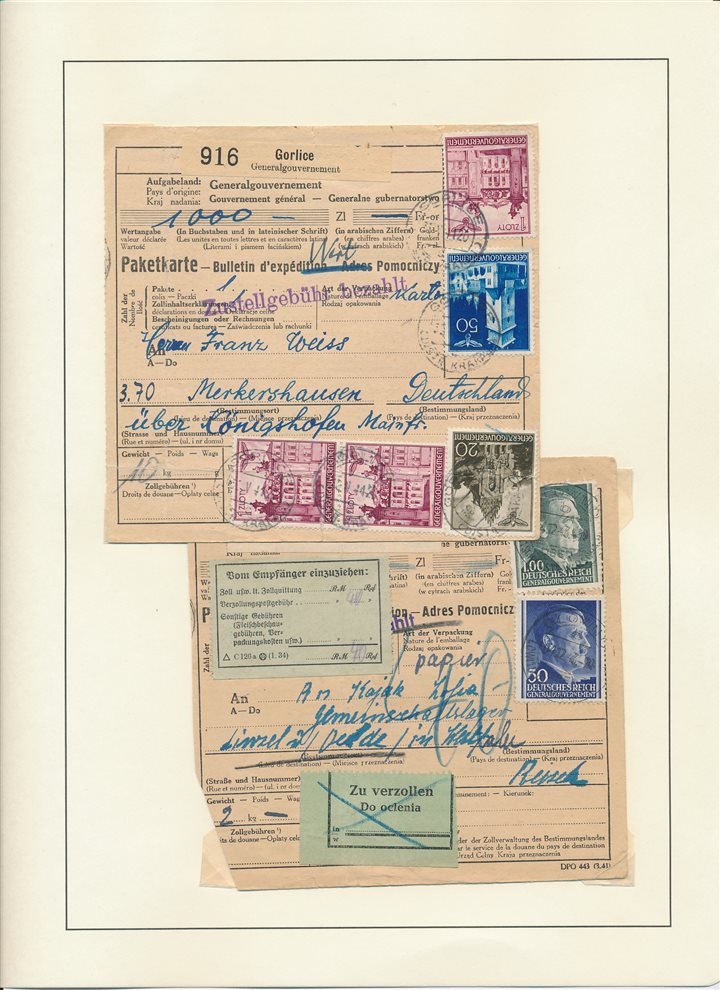 916 Gorlice
Generalgouvernement
Aufgabeland: Generalgouvernement
Pays d'origine: Gouvernement général - Generalne gubernatorstwo
Kraj nadania:
1000 — Zl — Fr-or
Wertangabe (in Buchstaben und in lateinischer Schrift) (in arabischen Ziffern) Gold-
valeur déclarée (Les unites en toutes lettres et en caractères latins) (en chiffres arabes) franken
Wartość (Literami i pismem łacińskim) (w cyfrach arabskich)
Wert
Paketkarte – Bulletin d'expédition – Adres Pomocniczy
Zahl der
Nombre de
Ilość
Pakete 1 Art der Verpackung Karton
colis – Paczki Nature de l'emballage
Zollinhaltserklärungen Rodzaj opakowania
déclarations en douane
Bescheinigungen oder Rechnungen
certificats ou factures – Zaświadczenia lub rachunki
Zustellgebühr bezahlt
An Herrn Franz Weiss
A – Do
3.70 Merkershausen Deutschland
(Bestimmungsort) (Bestimmungsland)
(Lieu de destination) – (Miejsce przeznaczenia) (Pays de destination) – (Kraj przeznaczenia)
über Königshofen Mainfr.
(Strasse und Hausnummer)
(Rue et numéro) – (ul. i nr domu)
Gewicht – Poids – Waga
kg
Zollgebühren
Droits de douane – Opłaty celne
1 ZŁOTY GENERALGOUVERNEMENT
50 GENERALGOUVERNEMENT
1 ZŁOTY GENERALGOUVERNEMENT
1 ZŁOTY GENERALGOUVERNEMENT
20 GENERALGOUVERNEMENT
1.00 DEUTSCHES REICH
GENERALGOUVERNEMENT
50 DEUTSCHES REICH
GENERALGOUVERNEMENT
Kraj nadania: gubernatorstwo
Zl Fr-
(in arabischen Ziffern) Gold-
(en chiffres arabes)
(w cyfrach arabskich)
Vom Empfänger einzuziehen:
Zoll usw. lt. Zollquittung RM Rpf
Verzollungspostgebühr " "
Sonstige Gebühren
(Fleischbeschau-
gebühren, Ver-
packungskosten usw.) " "
C 120a (1. 34) RM Rpf
Adres Pomocniczy
Zahl der
Art der Verpackung
Nature de l'emballage
Rodzaj opakowania
papier
An An Kajak Zofia
A – Do Gemeinschaftslager
(Bestimmungsort) (Bestimmungsland)
(Lieu de destination) – (Miejsce przeznaczenia) (Pays de destination) – (Kraj przeznaczenia)
(Straße und Hausnummer)
(Rue et numéro) – (ul. i nr domu)
Gewicht – Poids – Waga
2 kg
Zollgebühren
Droits de douane – Opłaty celne
Zu verzollen
Do oclenia
in
w
der Zollverwaltung des Bestimmungslandes
par le service de la douane du pays de destination
Urząd Celny Kraju przeznaczenia
DPO 443 (3.41)